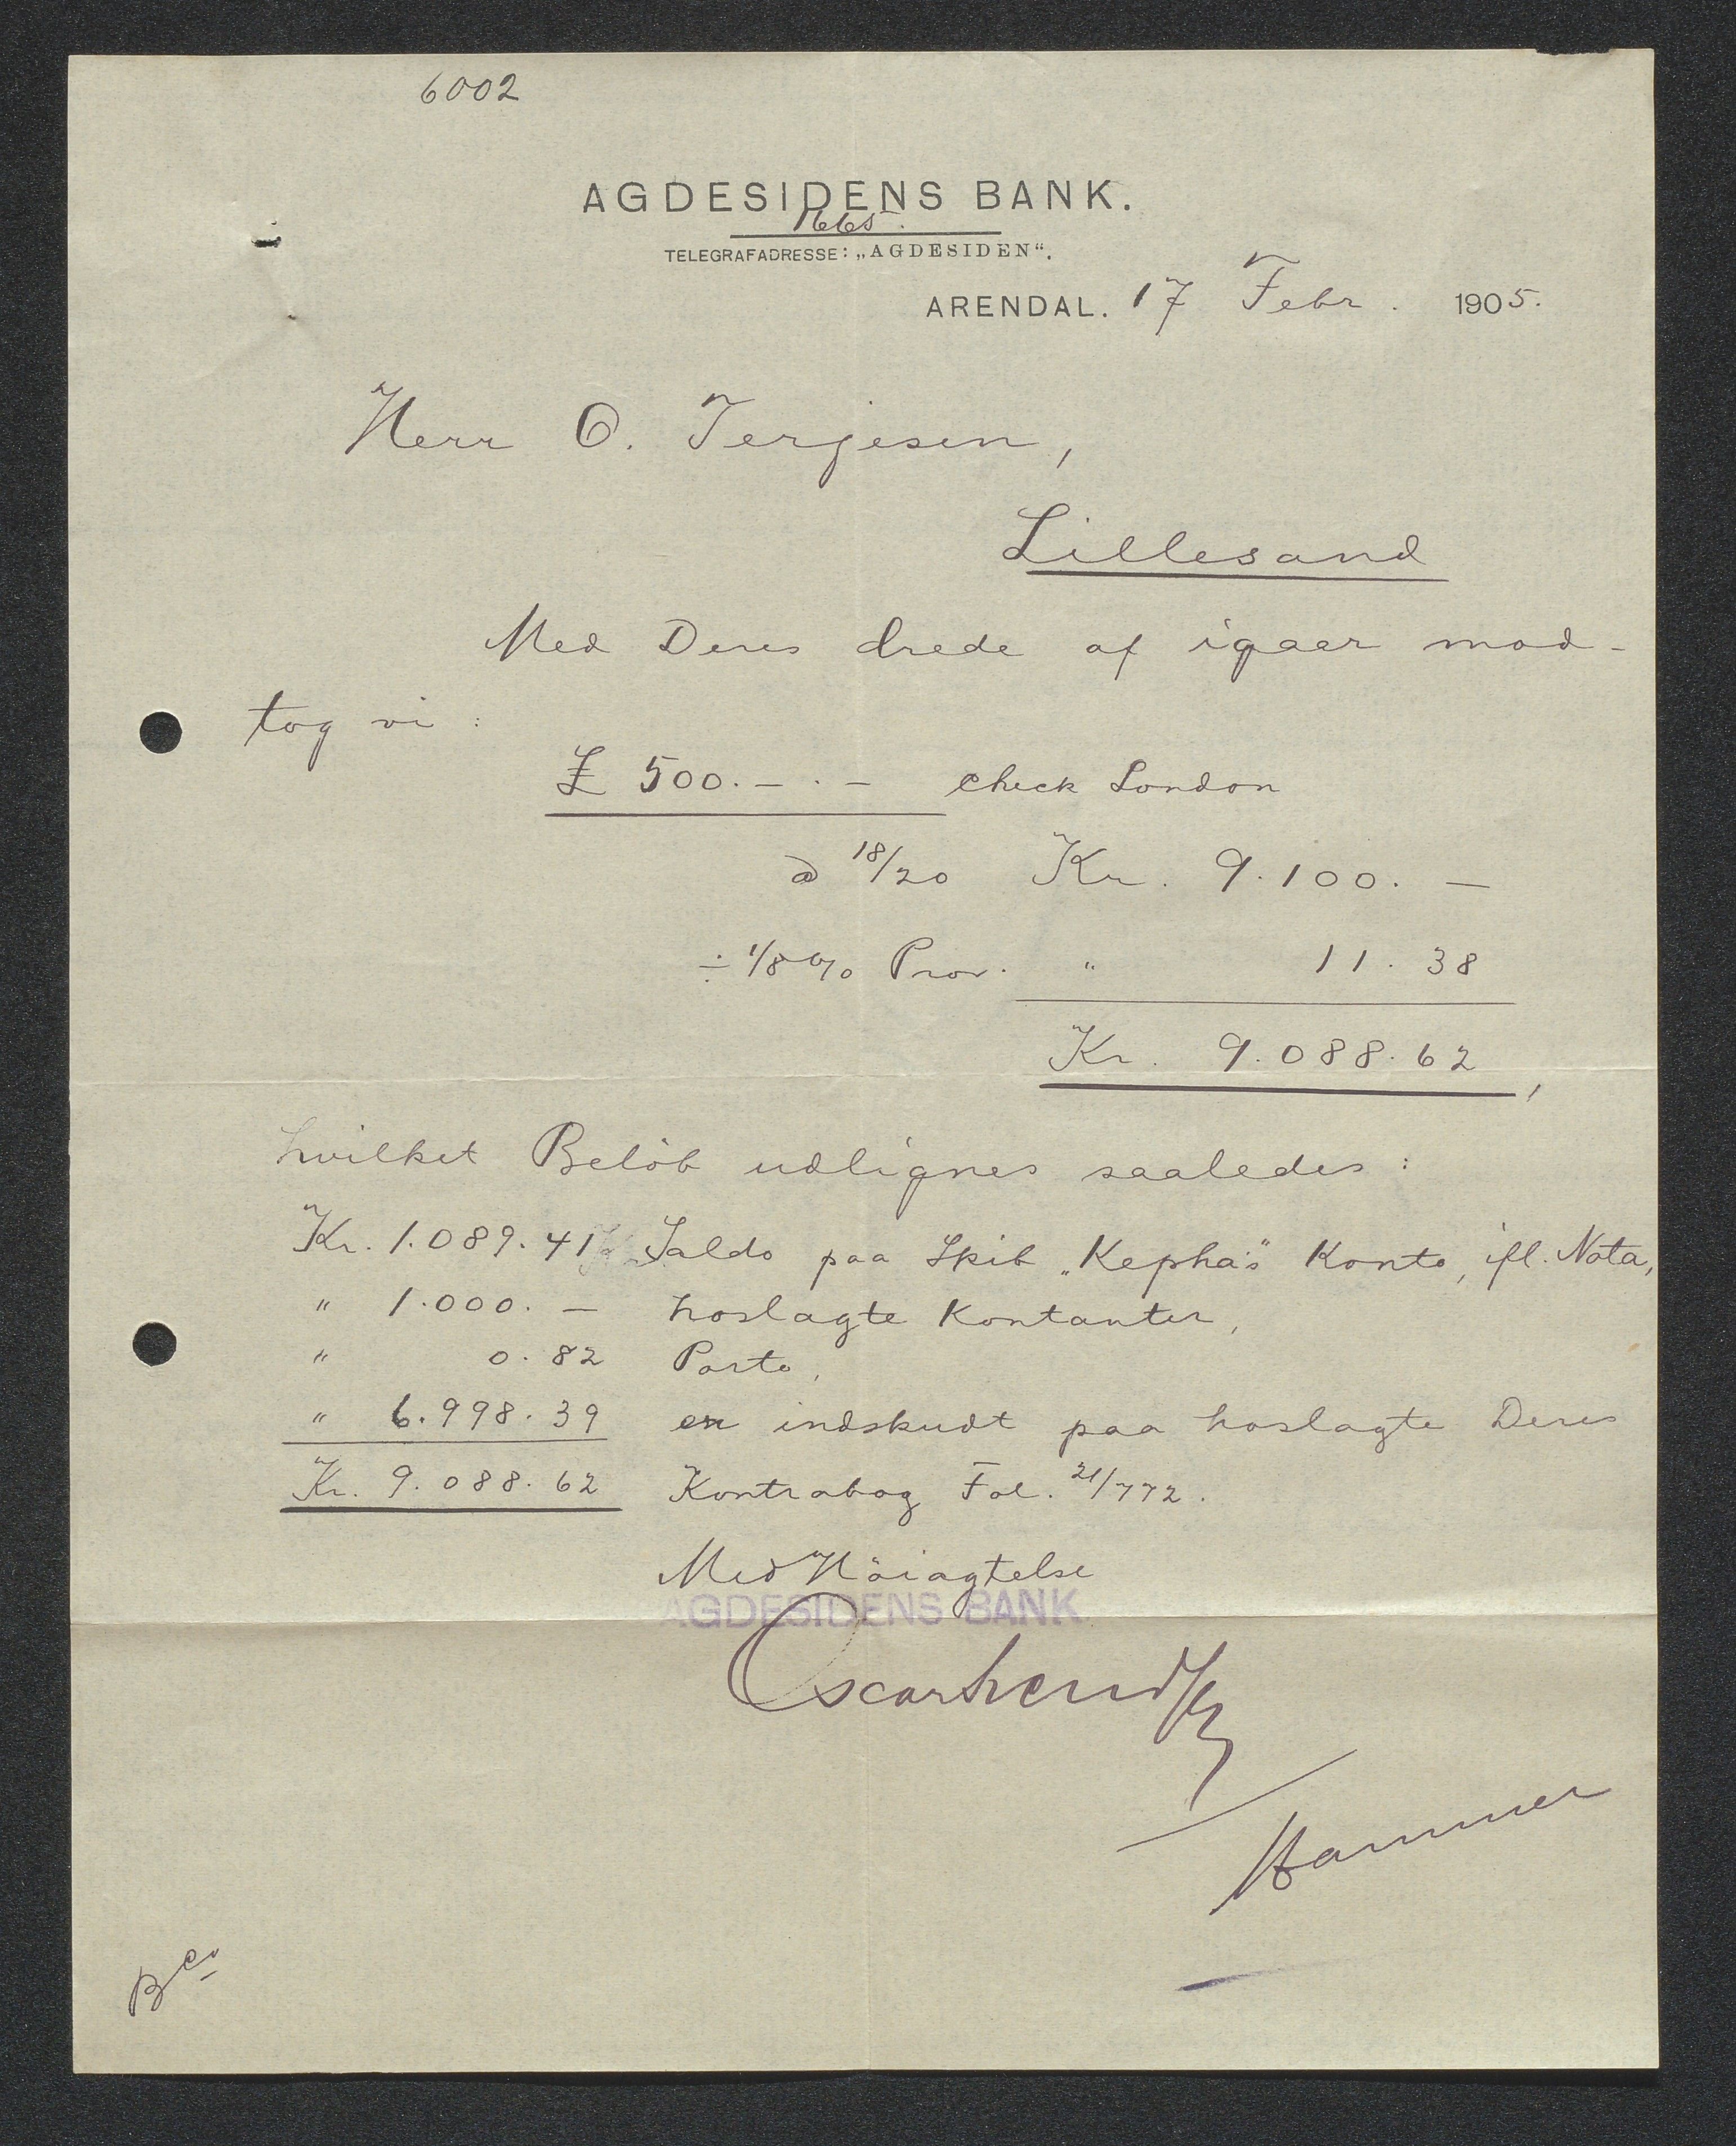 6002
AGDESIDENS BANK.
1665.
TELEGRAFADRESSE: „AGDESIDEN“.
ARENDAL. 17 Febr. 1905.
Herr O. Terjesen,
Lillesand
Med Deres ærede af igaar mod-
tog vi:
£ 500.-.- check London
à 18/20 Kr. 9.100. —
÷ 1/8 % Prov. " 11.38
Kr. 9.088.62,
hvilket Beløb udlignes saaledes:
Kr. 1.089.41 Saldo paa Skib „Kepha's“ Konto, ifl. Nota,
" 1.000. — hoslagte Kontanter,
" 0.82 Porto,
" 6.998.39 er indskudt paa hoslagte Deres
Kr. 9.088.62 Kontrabog Fol. 21/772.
Med Höiagtelse
AGDESIDENS BANK
Hammer